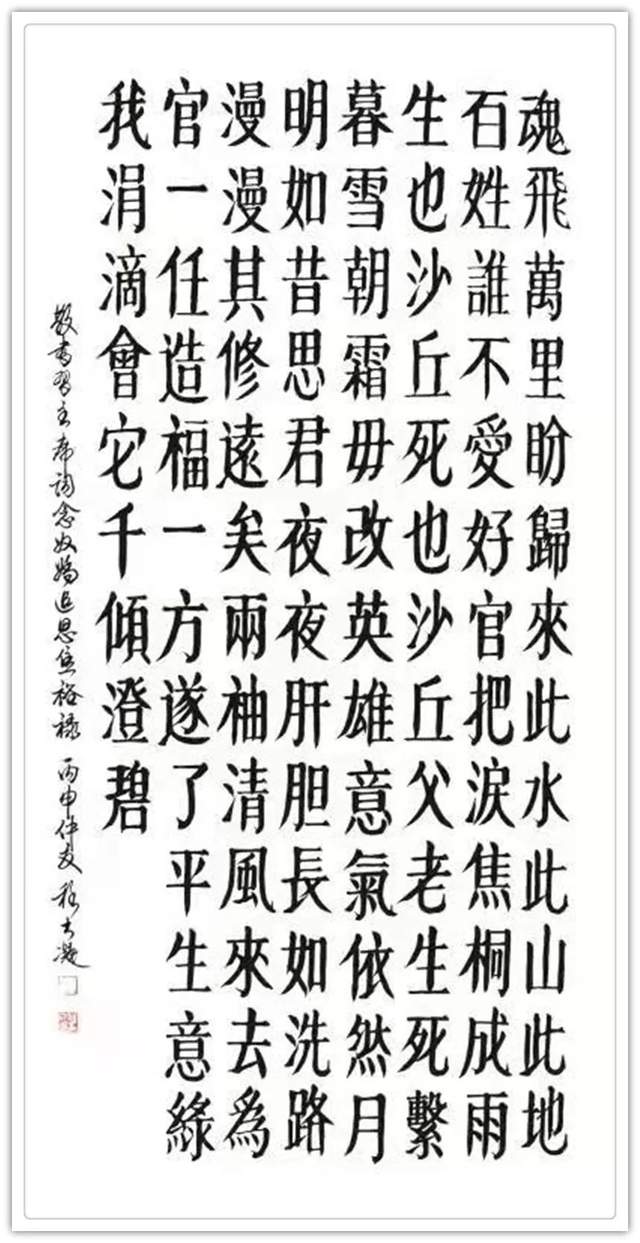 魂飛萬里盼歸來此水此山此地
百姓誰不愛好官把淚焦桐成雨
生也沙丘死也沙丘父老生死繫
暮雪朝霜毋改英雄意氣依然月
明如昔思君夜夜肝胆長如洗路
漫漫其修遠矣兩袖清風來去為
官一任造福一方遂了平生意綠
我涓滴會它千傾澄碧
敬書習主席詞念奴嬌追思焦裕祿 丙申仲夏